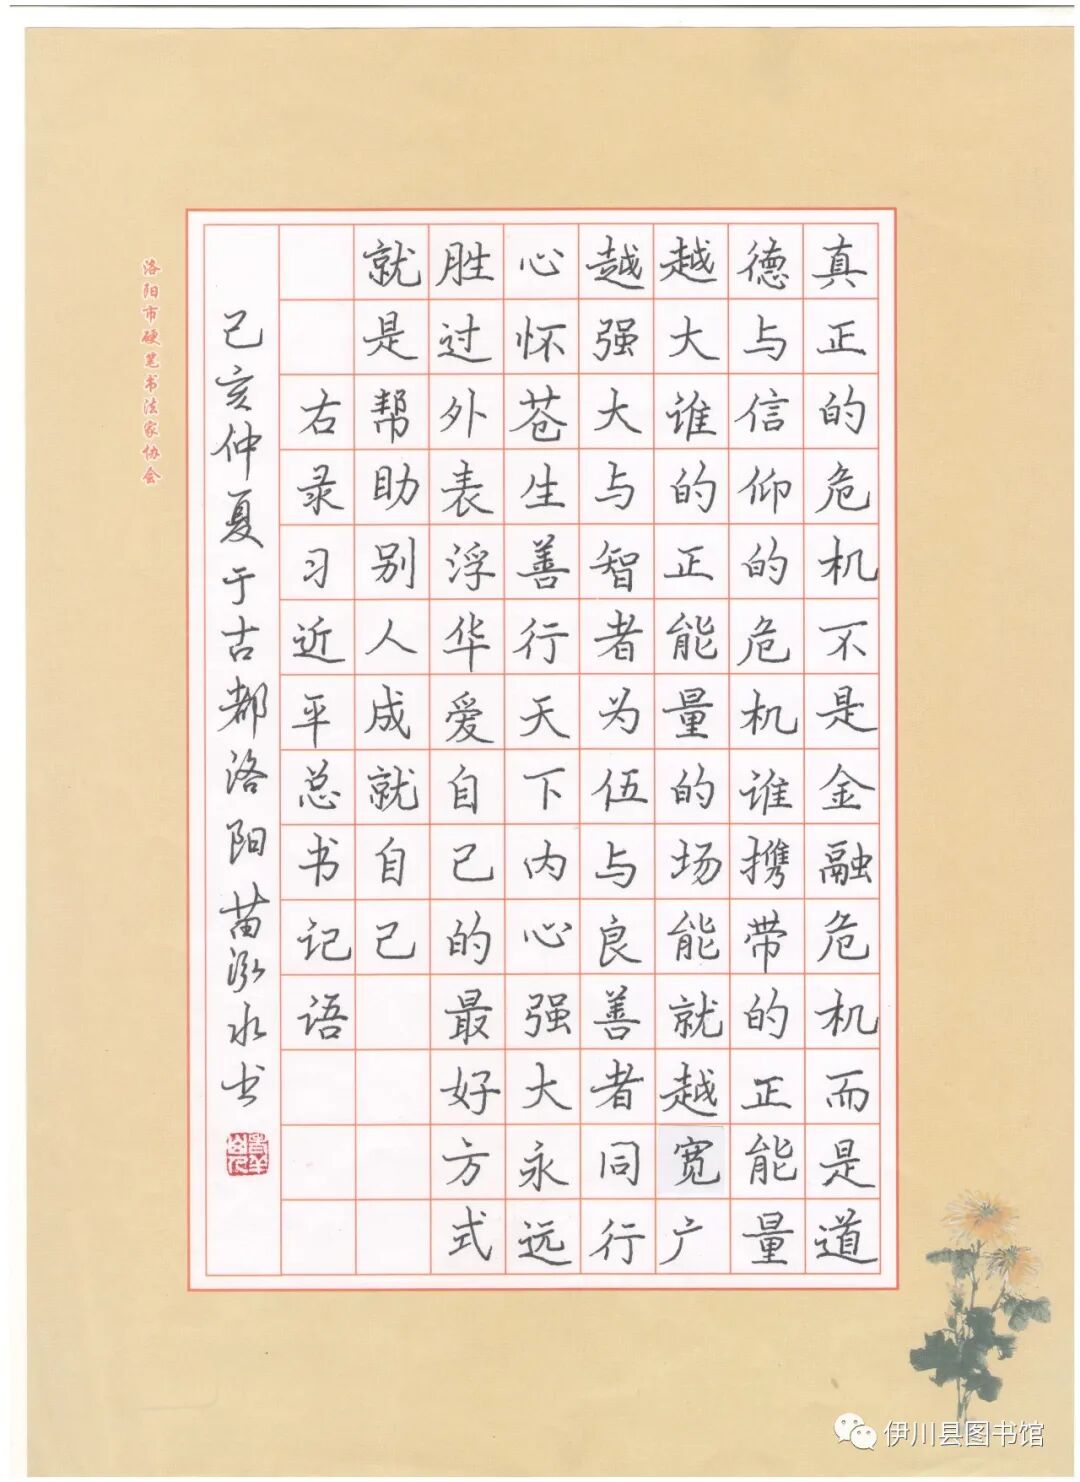 真正的危机不是金融危机而是道
德与信仰的危机谁携带的正能量
越大谁的正能量的场能就越宽广
越强大与智者为伍与良善者同行
心怀苍生善行天下内心强大永远
胜过外表浮华爱自己的最好方式
就是帮助别人成就自己
右录习近平总书记语
己亥仲夏于古都洛阳苗泓水书
洛阳市硬笔书法家协会
伊川县图书馆